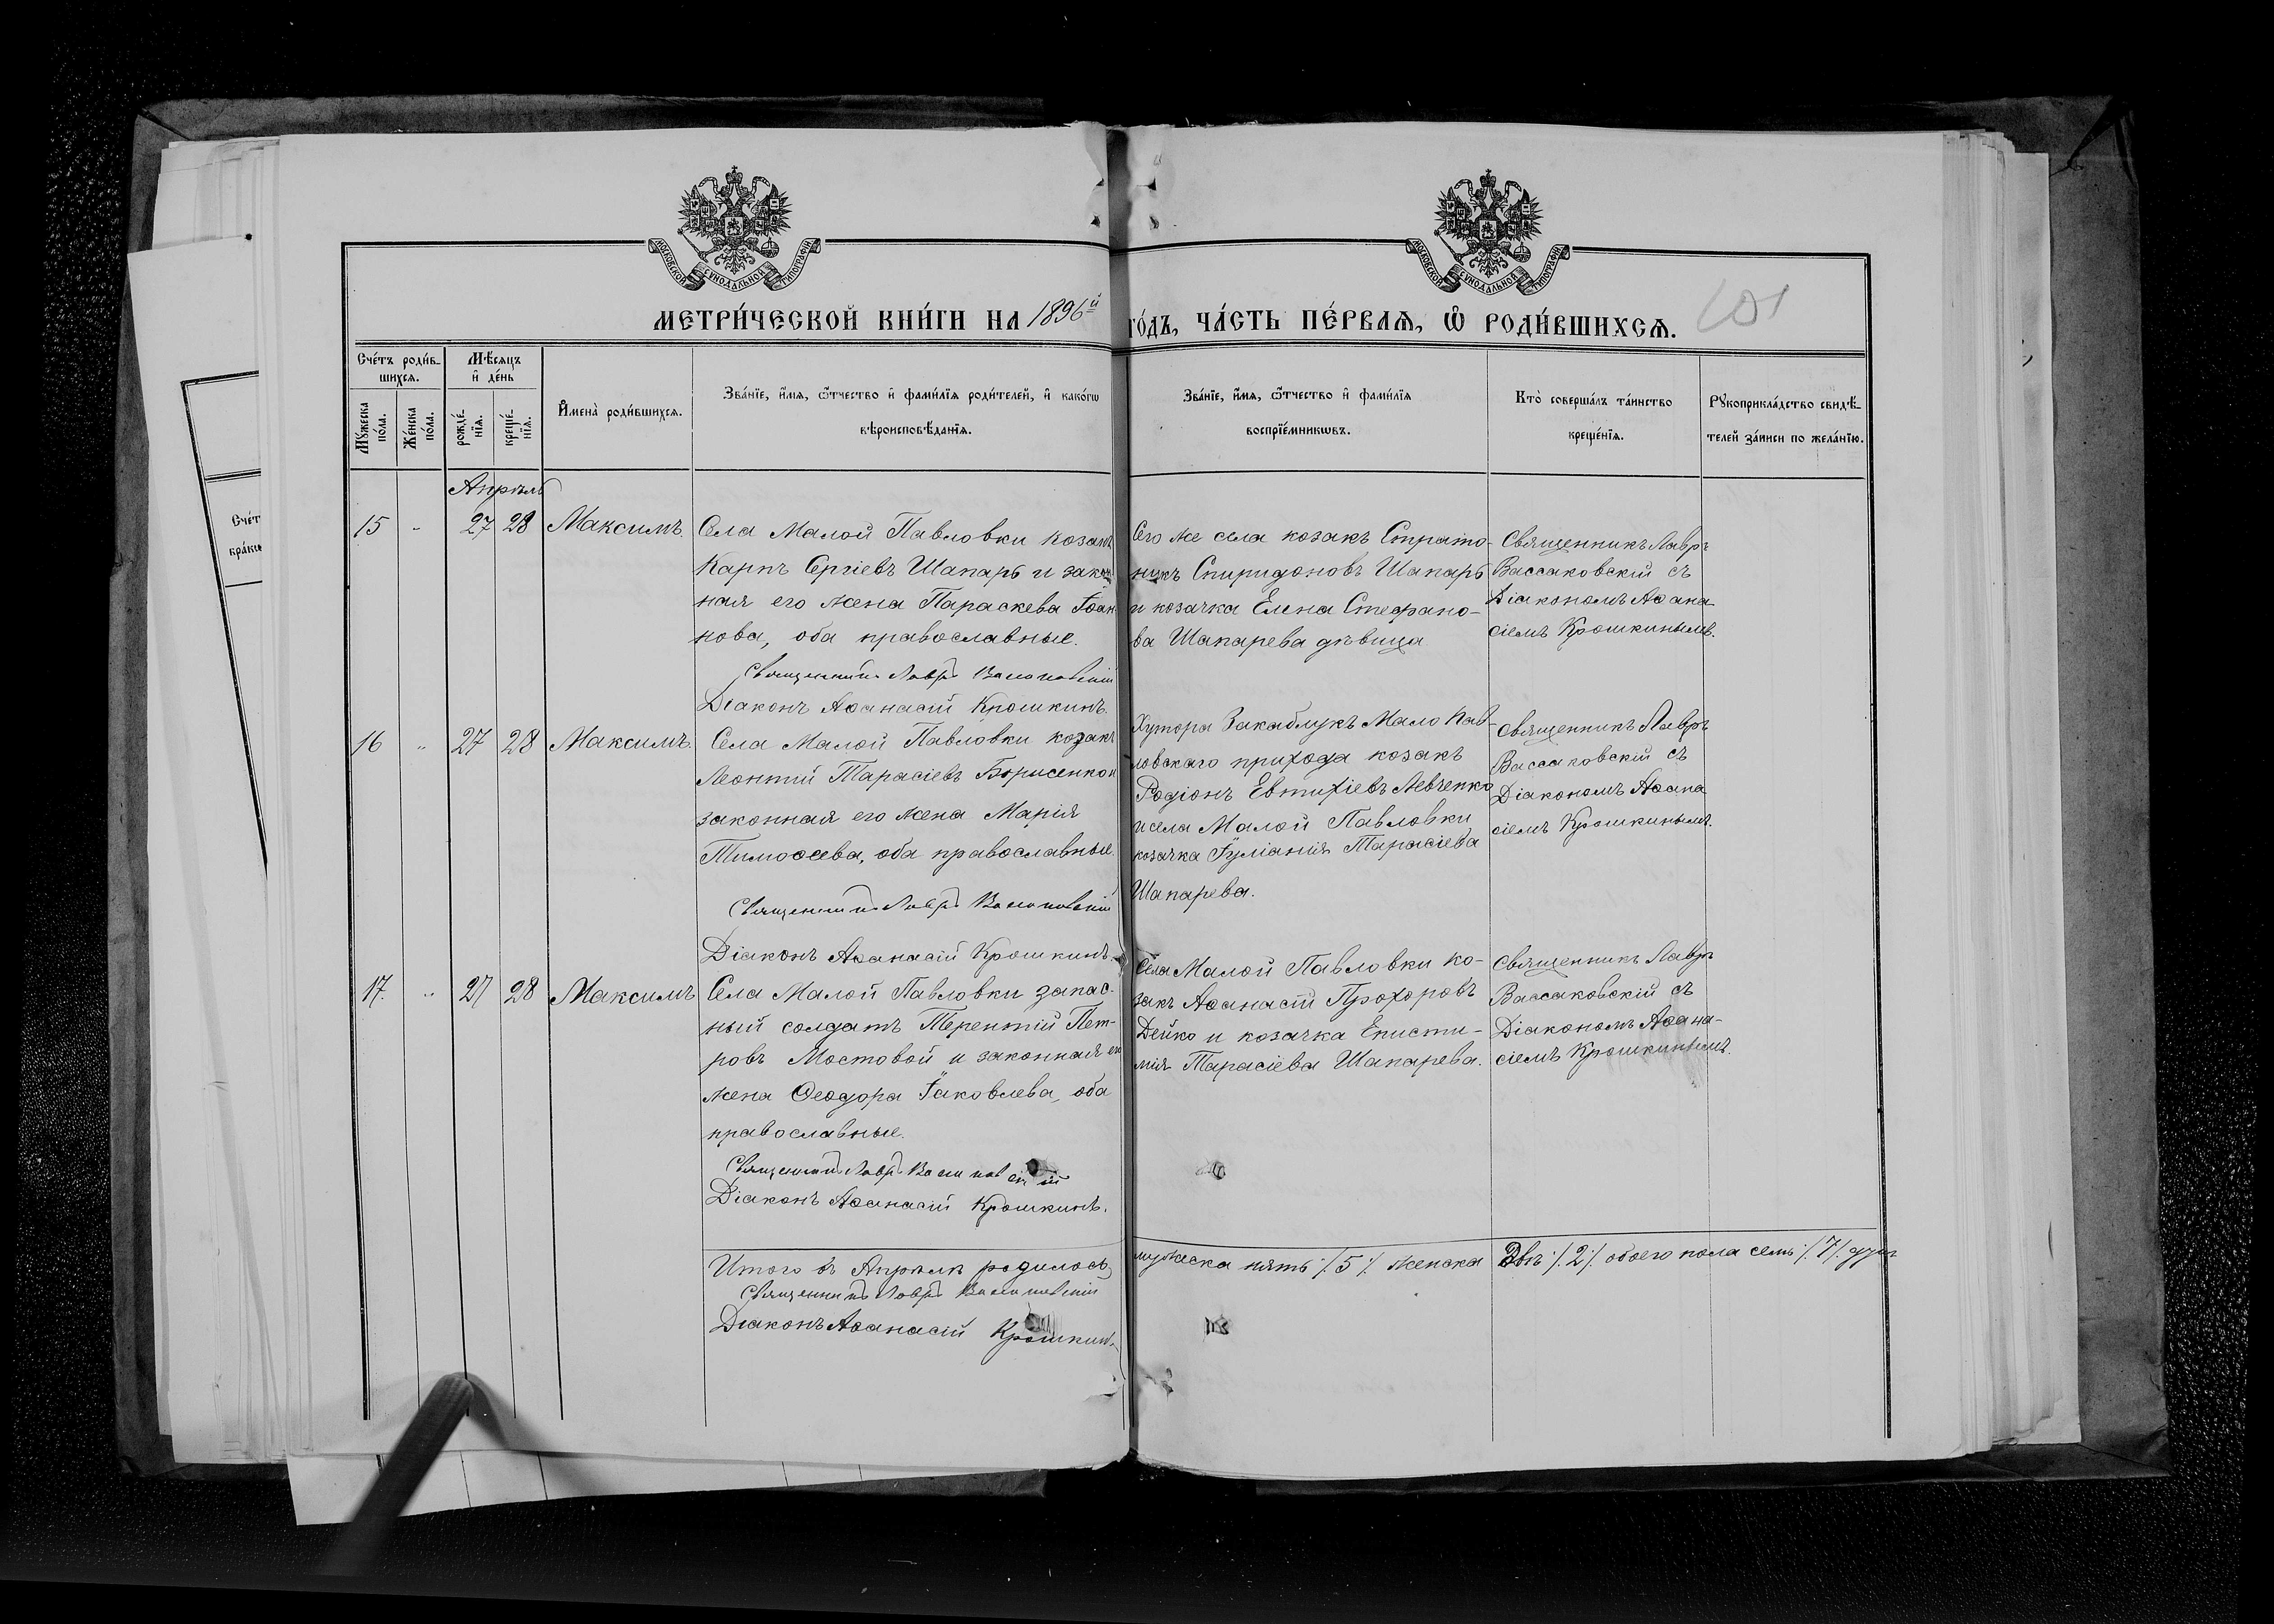 МОСКОВСКОЙ СУНОДАЛЬНОЙ ТИПОГРАФІИ
МОСКОВСКОЙ СУНОДАЛЬНОЙ ТИПОГРАФІИ
МЕТРИ́ЧЕСКОЙ КНИ́ГИ НА 1896й ГО́ДЪ, ЧА́СТЬ ПЕ́РВАЯ, Ѡ РОДИ́ВШИХСѦ.
101
Сче́тъ роди́в-
шихсѧ.
Мѣ́сѧцъ
и҆ де́нь
Мꙋ́жеска
по́ла.
Же́нска
по́ла.
рожде́-
нїѧ.
креще́-
нїѧ.
И҆мена̀ роди́вшихсѧ.
Зва́нїе, и҆́мѧ, ѻ҆́тчество и҆ фами́лїѧ роди́телей, и҆ како́гѡ
вѣроисповѣ́данїѧ.
Зва́нїе, и҆́мѧ, ѻ҆́тчество и҆ фами́лїѧ
воспрїе́мникѡвъ.
Кто̀ соверша́лъ та́инство
креще́нїѧ.
Рꙋкоприкла́дство свидѣ́-
телей за́писи по жела́нїю.
Сче́т
бра́ки
Апрѣль
15 - 27 28 Максимъ.
Села Малой Павловки козакъ
Карпъ Сергіевъ Шапарь и закон-
ная его жена Параскева Іоан-
нова, оба православные.
Священникъ Лавръ Вассаковскій
Діаконъ Аѳанасій Крошкинъ.
Его же села козакъ Страто-
никъ Спиридоновъ Шапарь
и козачка Елена Стефано-
ва Шапарева дѣвица
Священникъ Лавръ
Вассаковскій съ
Діакономъ Аѳана-
сіемъ Крошкинымъ.
16 " 27 28 Максимъ.
Села Малой Павловки козакъ
Леонтий Тарасіевъ Борисенко и
законная его жена Марія
Тимоѳеева, оба православные.
Священникъ Лавръ Вассаковскій
Діаконъ Аѳанасій Крошкинъ.
Хутора Закаблукъ Мало Пав-
ловскаго прихода козакъ
Родіонъ Евтихіевъ Левченко
и села Малой Павловки
козачка Іуліанія Тарасіева
Шапарева.
Священникъ Лавръ
Вассаковскій съ
Діакономъ Аѳана
сіемъ Крошкинымъ.
17. " 27 28 Максимъ
Села Малой Павловки запас-
ный солдатъ Терентій Пет-
ровъ Мостовой и законная его
жена Ѳеодора Іаковлева, оба
православные.
Священникъ Лавръ Вассаковскій
Діаконъ Аѳанасій Крошкинъ.
Села Малой Павловки ко-
закъ Аѳанасій Прохоровъ
Дейко и козачка Еписти-
мія Тарасіева Шапарева.
Священникъ Лавръ
Вассаковскій съ
Діакономъ Аѳана-
сіемъ Крошкинымъ.
Итого въ Апрѣлѣ родилось мужеска пять ⁒ 5 ⁒ женска Двѣ ⁒ 2 ⁒ обоего пола семь ⁒ 7 ⁒ душъ
Священникъ Лавръ Вассаковскій
Діаконъ Аѳанасій Крошкинъ